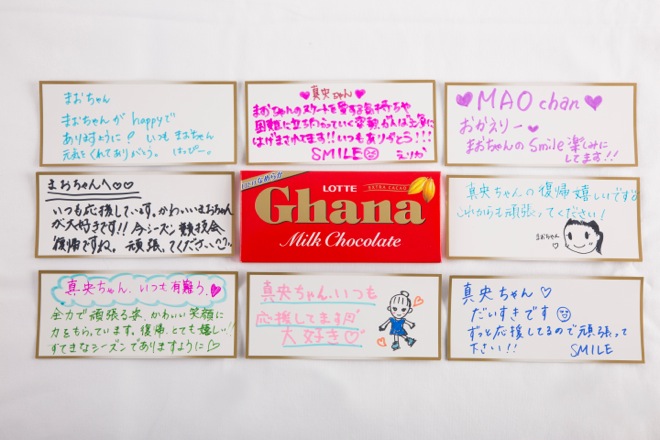 まおちゃん
まおちゃんが happyで
ありますように いつも まおちゃん
元気をくれてありがとう。 はっぴー。
真央ちゃん
まおちゃんのスケートを愛する気持ちや
困難に立ち向かっていく姿勢が
はげまされてます!! いつもありがとう!!!
SMILE えりか
MAO chan
おかえりー
まおちゃんの Smile 楽しみに
してます!!
まおちゃんへ♡♡
いつも応援しています。かわいいまおちゃん
が大好きです!! 今シーズン競技会
復帰ですね。頑張ってください
とびきりなめらか
LOTTE EXTRA CACAO
Ghana
Milk Chocolate
真央ちゃんの復帰嬉しいです
これからも頑張ってください!
まおちゃん
真央ちゃん、いつも有難う、♥
全力で頑張る姿、かわいい笑顔に
力をもらっています。復帰、とても嬉しい!!
すてきなシーズンでありますように♡
真央ちゃん、いつも
応援してます
大好き♡
真央ちゃん ♡
だいすきです
ずっと応援してるので頑張って
下さい!! SMILE